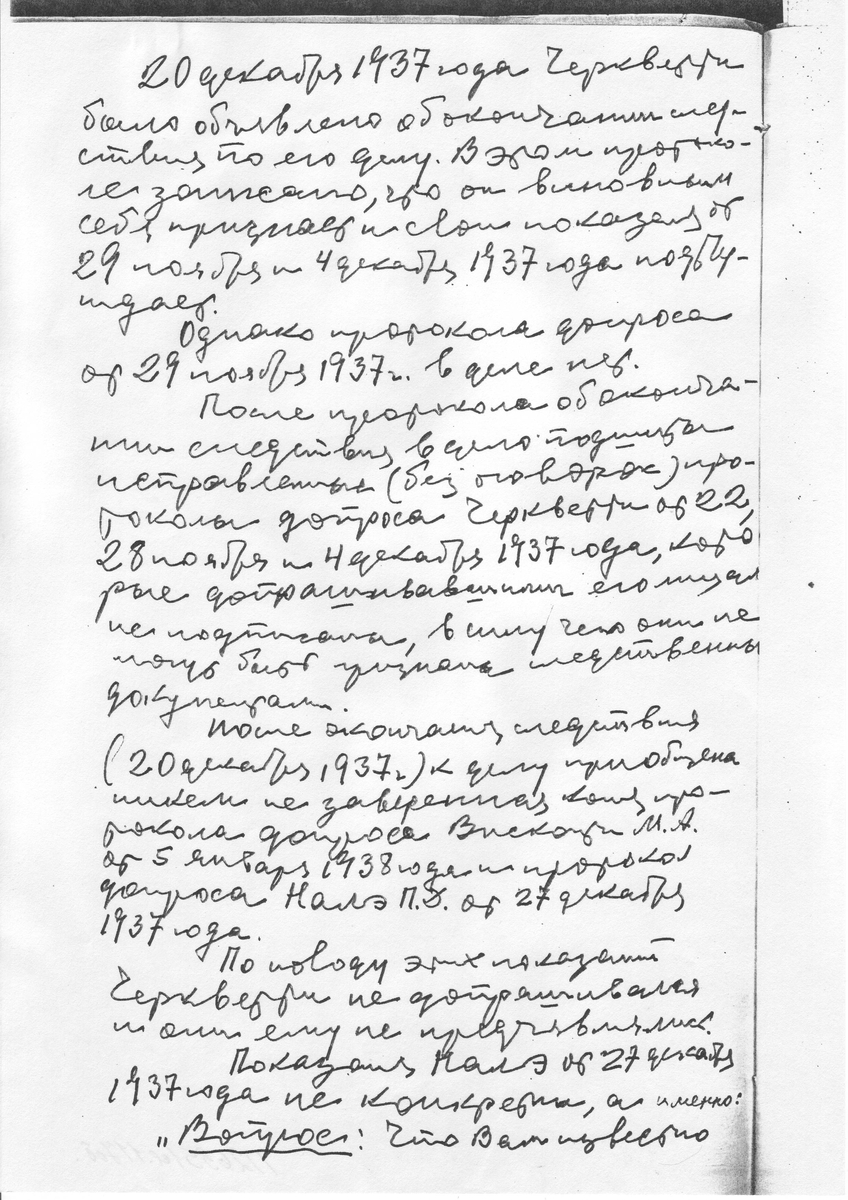 20 декабря 1937 года Черкветти
было объявлено об окончании след-
ствия по его делу. В этом протоко-
ле записано, что он виновным
себя признает и свои показания от
29 ноября и 4 декабря 1937 года подтвер-
ждает.
Однако протокола допроса
от 29 ноября 1937 г. в деле нет.
После протокола об оконча-
нии следствия в дело подшиты
исправленные (без оговорок) про-
токолы допроса Черкветти от 22,
28 ноября и 4 декабря 1937 года, кото
рые допрашивавшими его лицами
не подписаны, в силу чего они не
могут быть признаны следственны
документами.
После окончания следствия
(20 декабря 1937 г.) к делу приобщена
никем не заверенная копия про-
токола допроса Висконти М.А.
от 5 января 1938 года и протокол
допроса Налэ П.Д. от 27 декабря
1937 года.
По поводу этих показаний
Черкветти не допрашивался
и они ему не предъявлялись.
Показания Налэ от 27 декабря
1937 года не конкретны, а именно:
„Вопрос: Что Вам известно